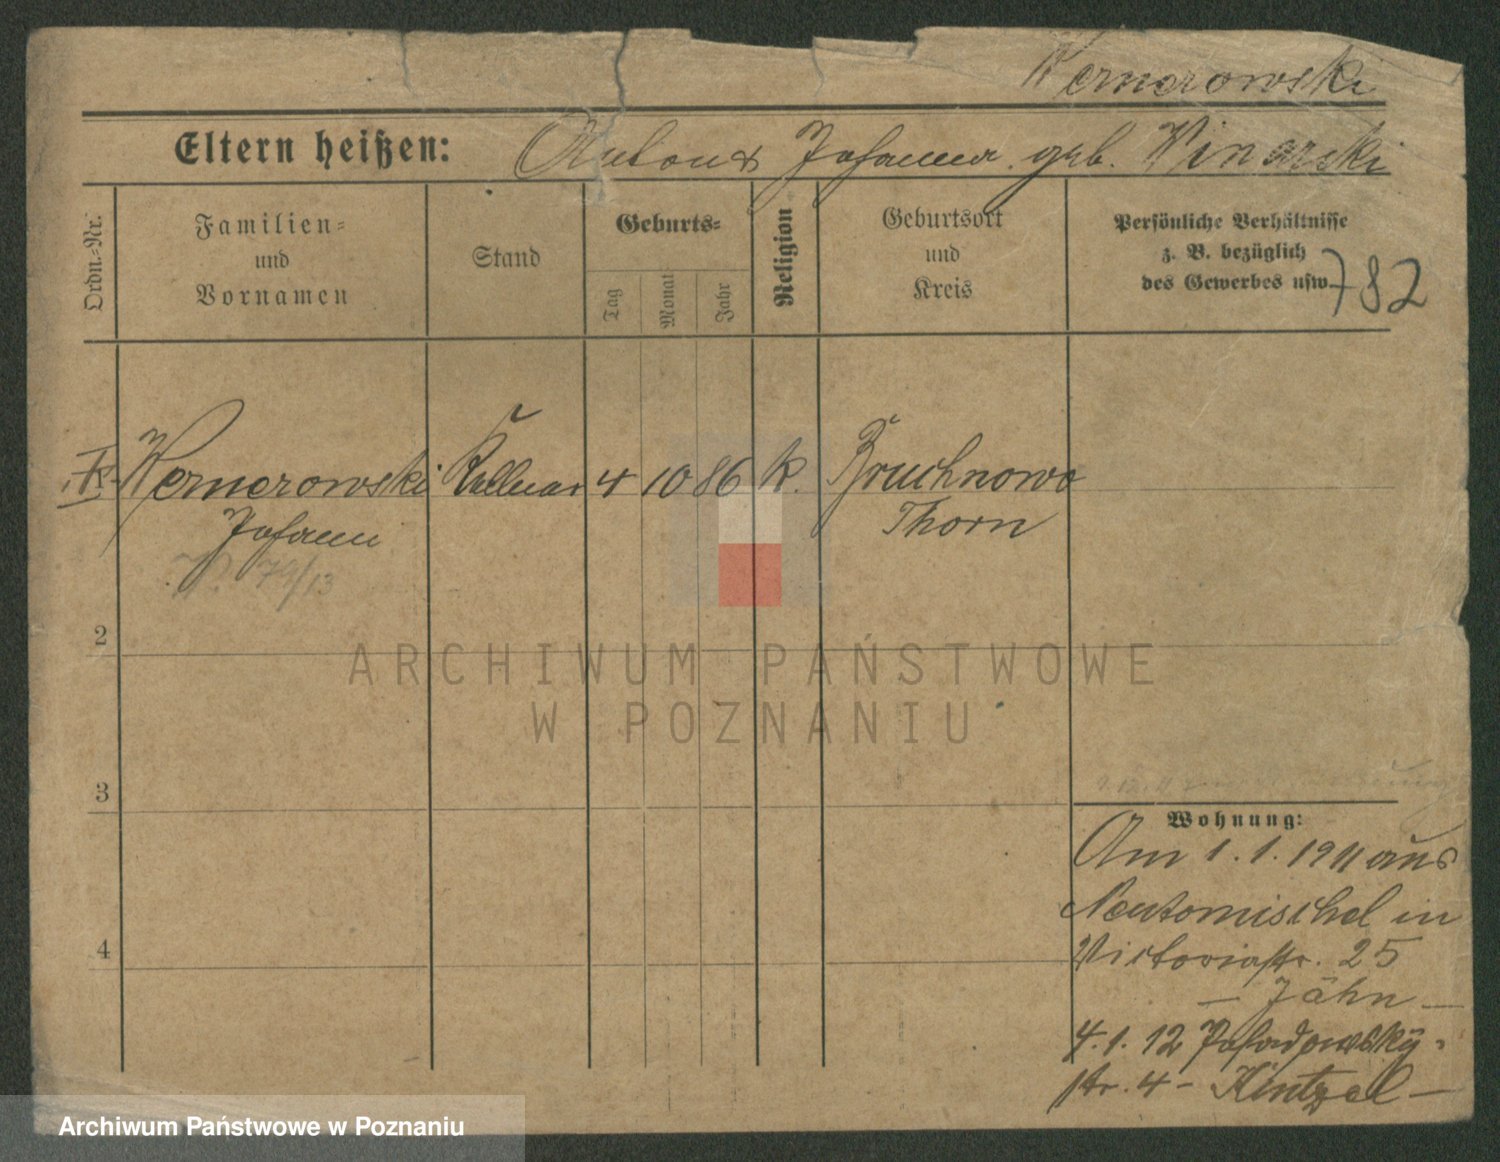 Wernerowski
Eltern heißen: Anton & Johanna geb. Winarski
Ordn.-Nr.
Familien-
und
Vornamen
Stand
Geburts-
Tag
Monat
Jahr
Religion
Geburtsort
und
Kreis
Persönliche Verhältnisse
z. B. bezüglich
des Gewerbes usw.
782
Wernerowski Kellner 4 10 86 k. Bruchnowo
Johann Thorn
79/13
2
3
4
ARCHIWUM PAŃSTWOWE
W POZNANIU
Wohnung:
Am 1.1.1911 aus
Neutomischel in
Victoriastr. 25
— Jähn —
4.1.12 Posadowsky-
str. 4 - Kintzel —
Archiwum Państwowe w Poznaniu